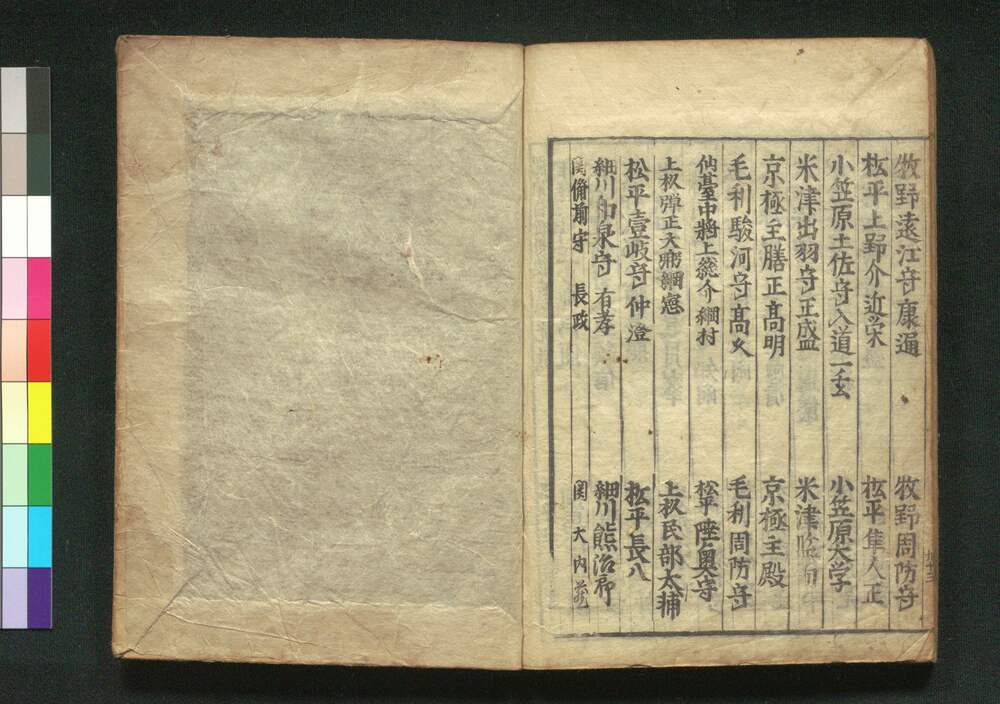 牧野遠江守康通 牧野周防守
松平上野介近栄 松平隼人正
小笠原土佐守入道一玄 小笠原大学
米津出羽守正盛 米津
京極主膳正高明 京極主殿
毛利駿河守高久 毛利周防守
仙臺中將上総介綱村 松平陸奥守
上杦弾正大弼綱憲 上杦民部大輔
松平壹岐守仲澄 松平長八
細川和泉守有孝 細川熊治郎
関備前守 長政 関 大内蔵